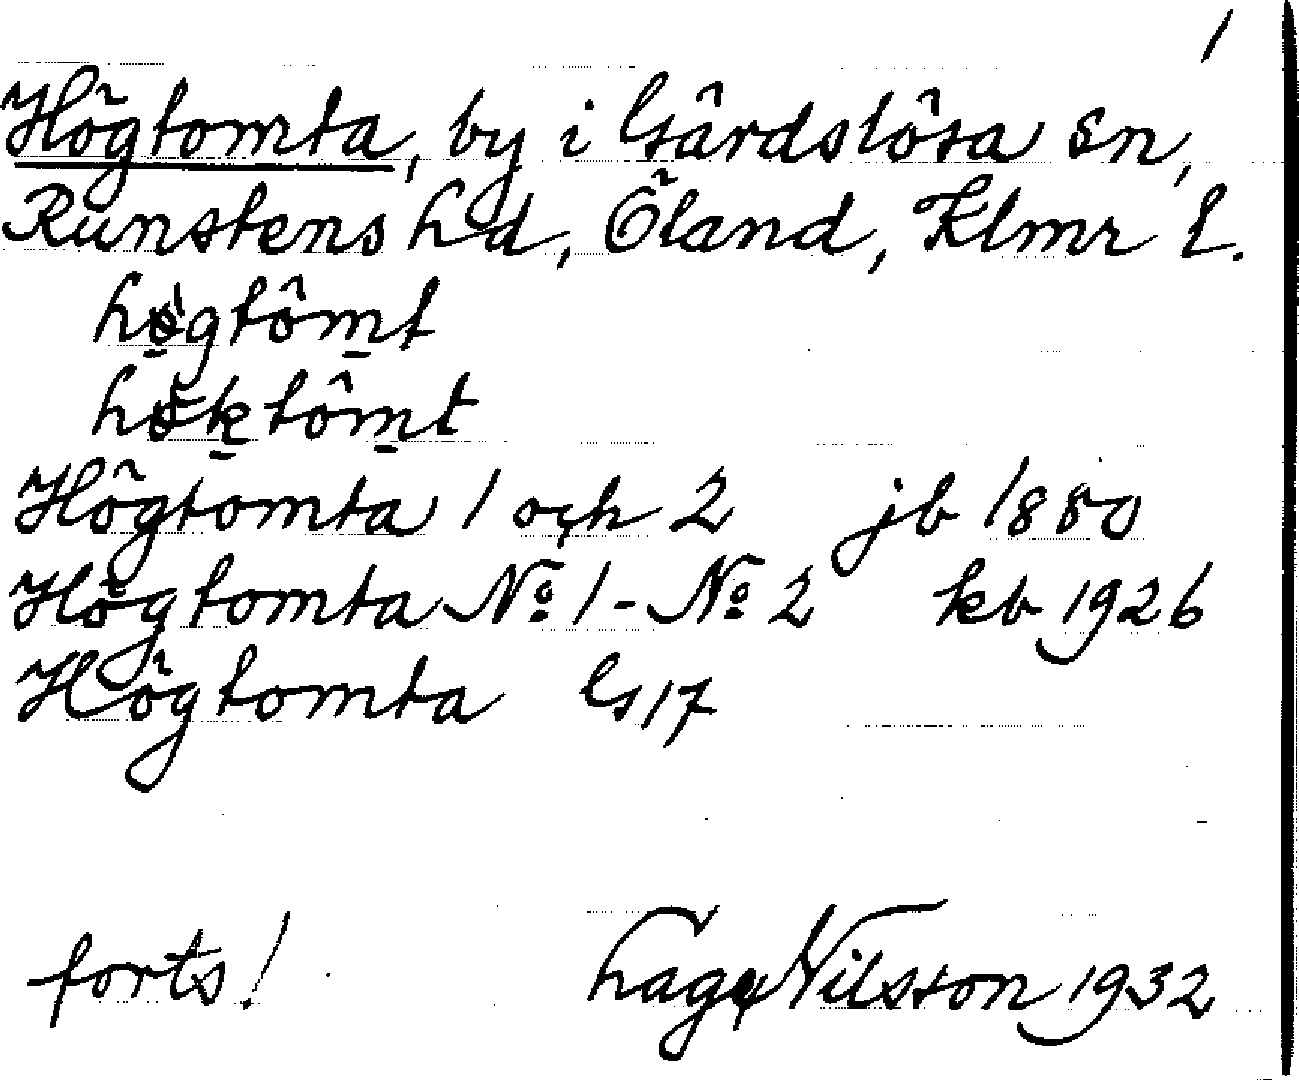 1
Högtomta, by i Gärdslösa sn,
Runstens hd, Öland, Klmr l.
högtômt
höktômt
Högtomta 1 och 2 jb 1880
Högtomta No 1 - No 2 kb 1926
Högtomta Gs 17
forts! Nilsson 1932